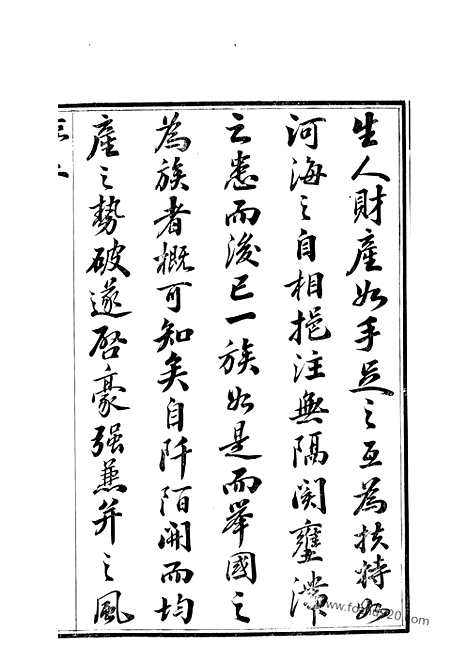 生人財產如手足之互為扶持如
河海之自相挹注無隔閡壅滯
之患而後已一族如是而舉國之
為族者概可知矣自阡陌開而均
產之勢破遂啓豪强蒹并之風